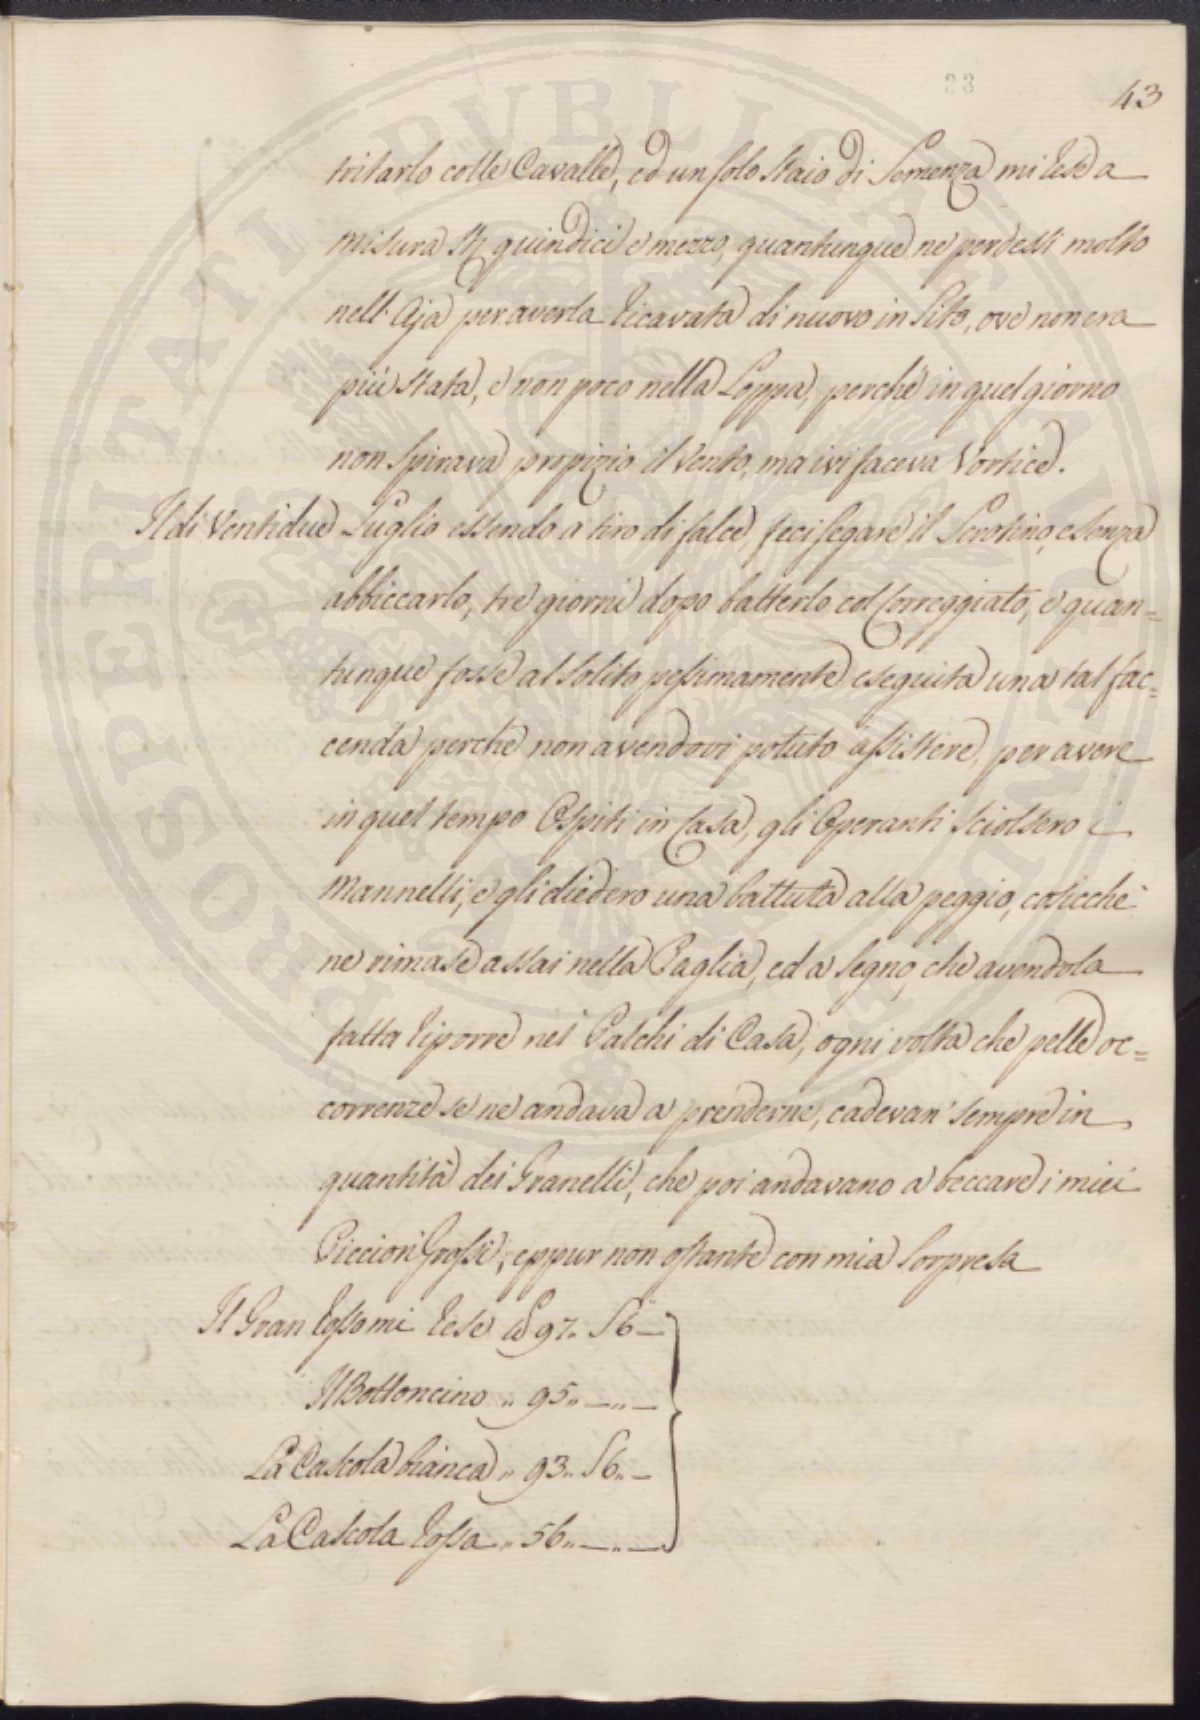 23
43
tritarlo colle Cavalle, ed un solo Staio di Semenza mi rese a
misura St. quindici e mezzo, quantunque ne perdessi molto
nell'Aja per averla ricavata di nuovo in Sito, ove non era
più stata, e non poco nella Loppa, perchè in quel giorno
non spirava propizio il Vento, ma ivi faceva Vortice.
Il di Ventidue Luglio essendo a tiro di falce, feci segare il Serotino, e senza
abbiccarlo, tre giorni dopo batterlo col Correggiato, e quan=
tunque fosse al solito pessimamente eseguita una tal fac=
cenda perchè non avendovi potuto assistere, per avere
in quel tempo Ospiti in Casa, gli Operanti sciolsero i
Mannelli, e gli diedero una battuta alla peggio, cosicchè
ne rimase assai nella Paglia, ed a segno, che avendola
fatta riporre nei Palchi di Casa, ogni volta che pelle oc=
correnze se ne andava a prenderne, cadevan' sempre in
quantità dei Granelli, che poi andavano a beccare i miei
Piccion Grossi; eppur non ostante con mia sorpresa
Il Gran Rosso mi rese @ 97. S6 —
Il Bottoncino „ 95„ —„ —
La Cascola bianca „ 93„ S6„ —
La Cascola Rossa „ 56„ —„ —
PROSPERITATI PUBLICAE AUGENDAE